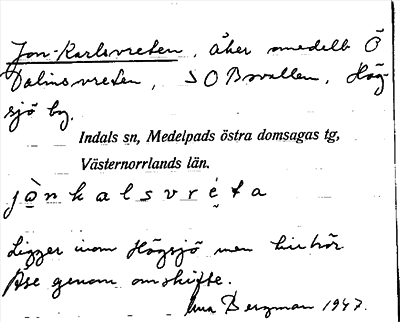 Jon-Karlsvreten, åker omedelb Ö
Dalinsvreten, SO Bovallen, Hög-
sjö by.
Indals sn, Medelpads östra domsagas tg,
Västernorrlands län.
jò̱nkalsvré̱ta
Ligger inom Högsjö men tillhör
Åse genom omskifte.
Bergman 1947.